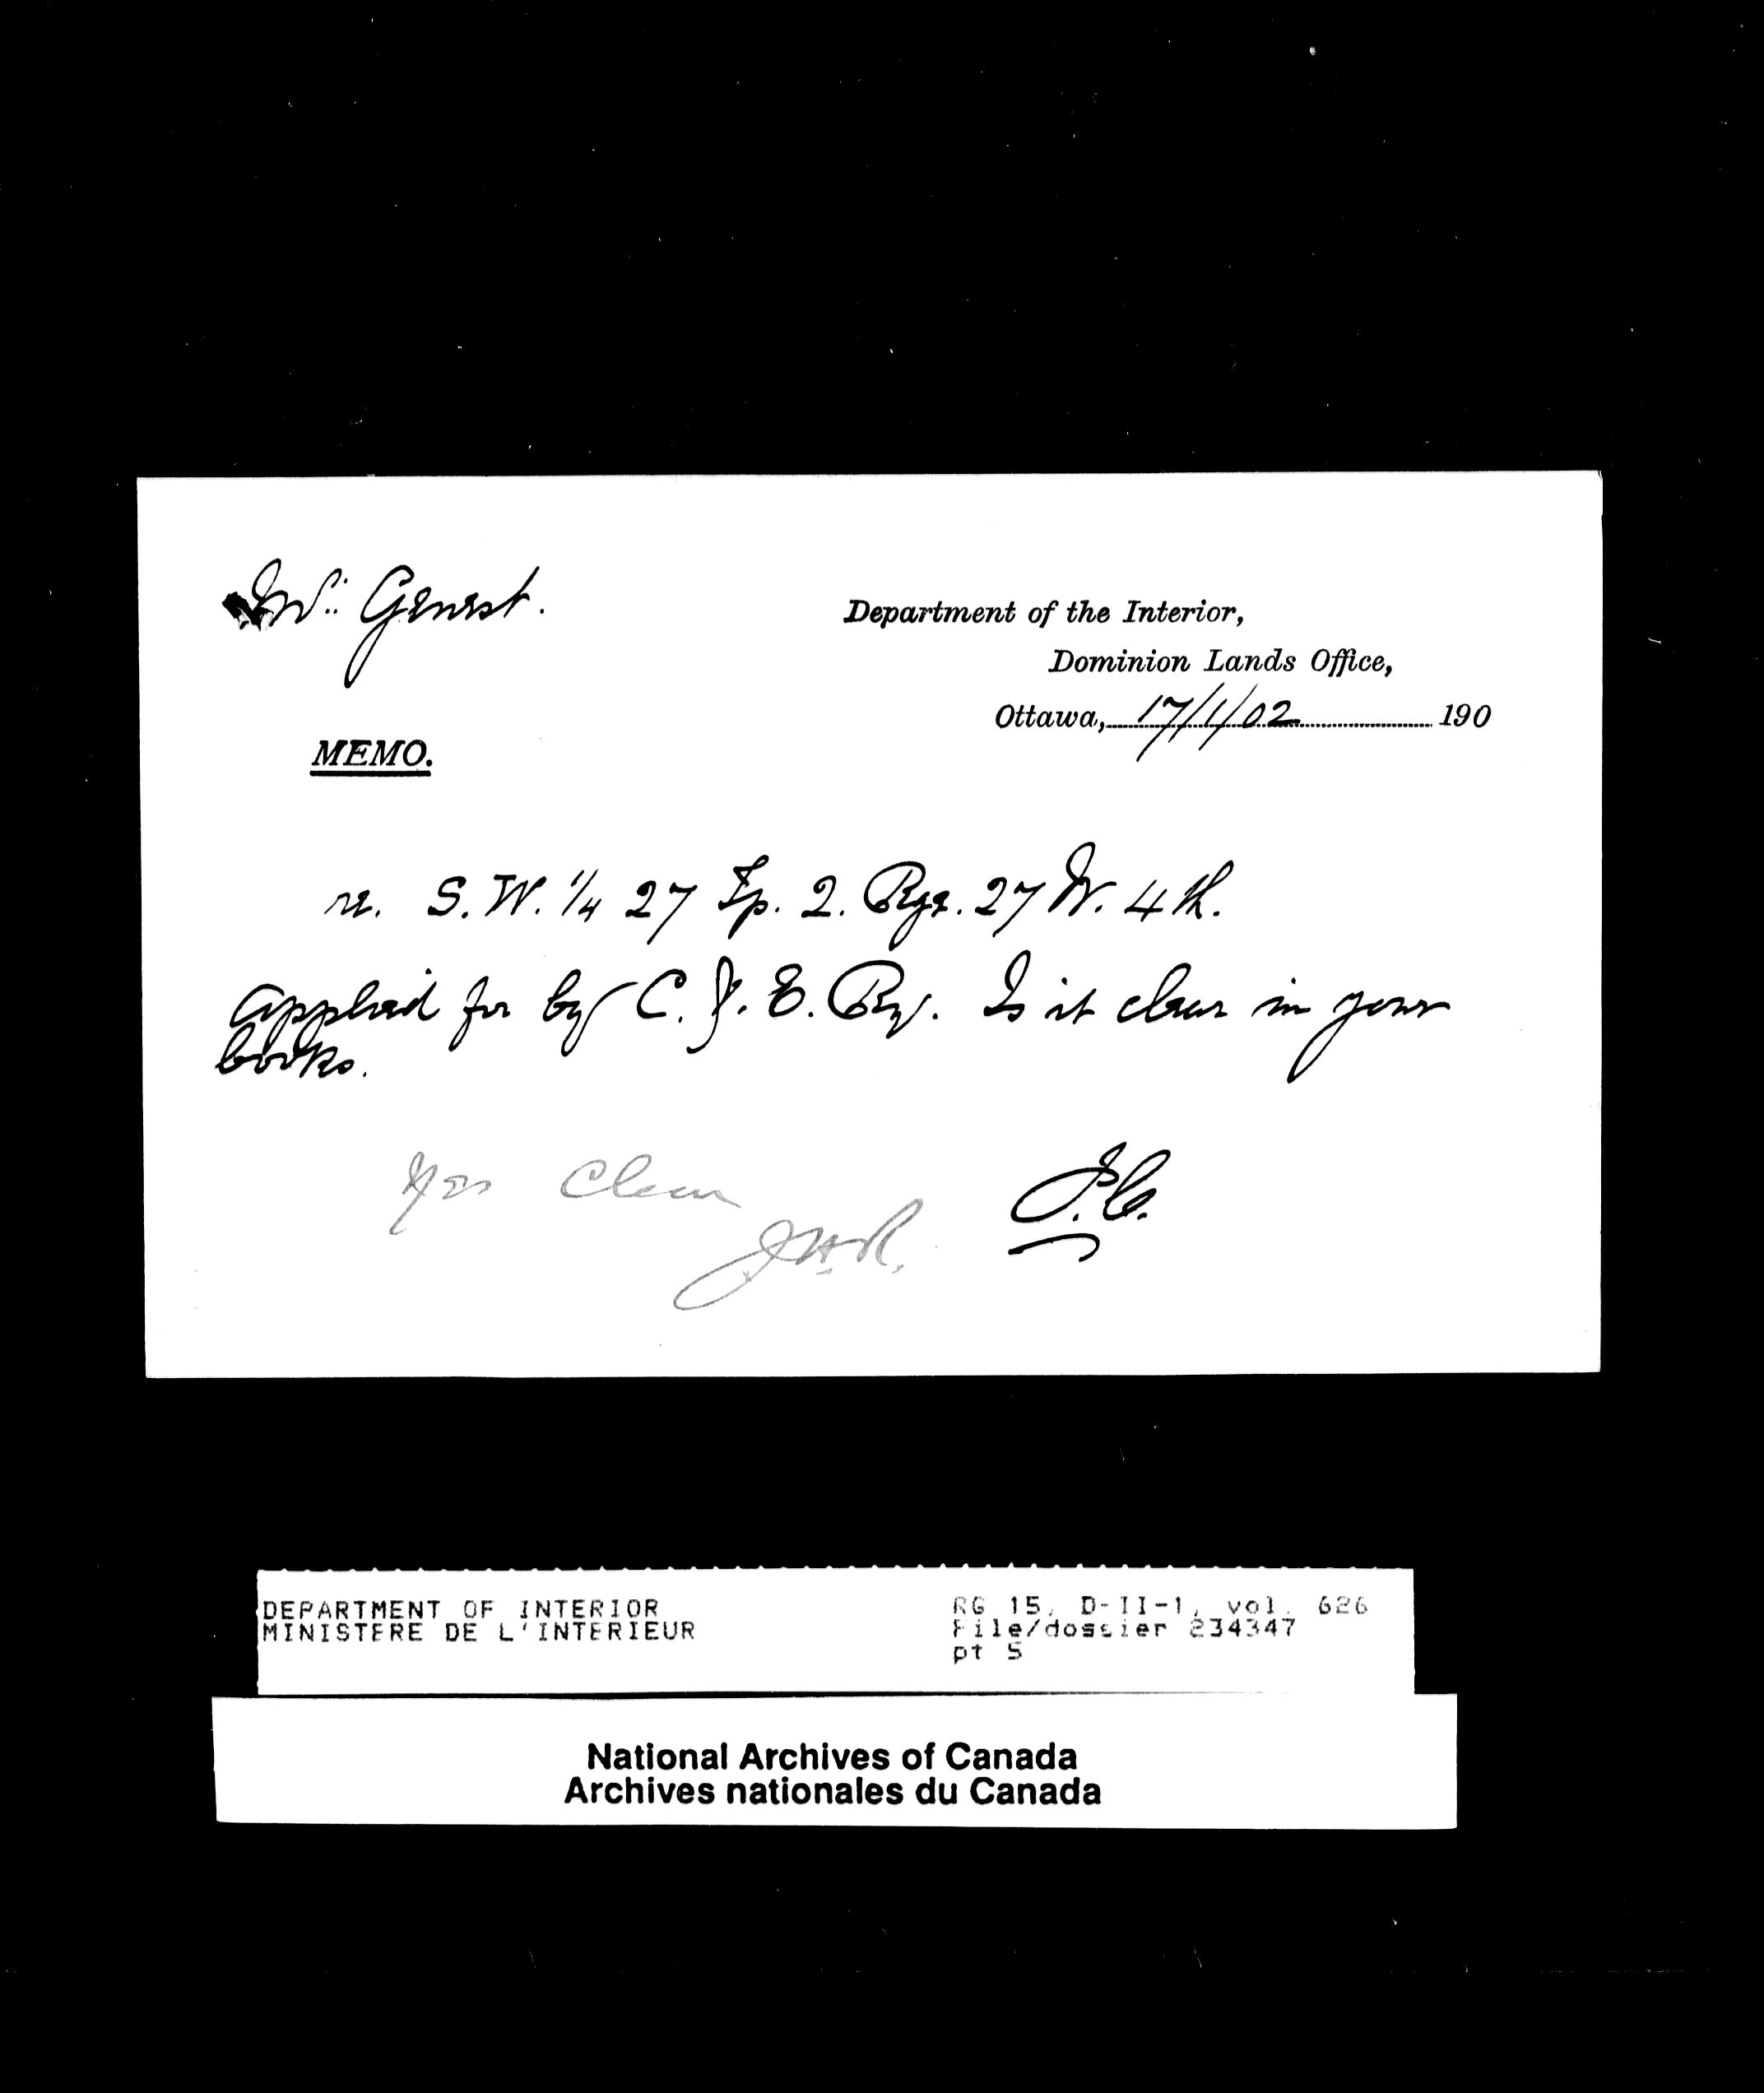 Mr. Genest.
Department of the Interior,
Dominion Lands Office,
Ottawa, 17/1/02 190
MEMO.
re. S.W. 1/4 27 Tp. 2. Rge. 27 W. 4th.
applied for by C. & E. Ry. Is it clear in your
books.
Yes Clear
P.C.
J.H.R.
DEPARTMENT OF INTERIOR
MINISTERE DE L'INTERIEUR
RG 15, D-II-1, vol. 626
File/dossier 234347
pt 5
National Archives of Canada
Archives nationales du Canada